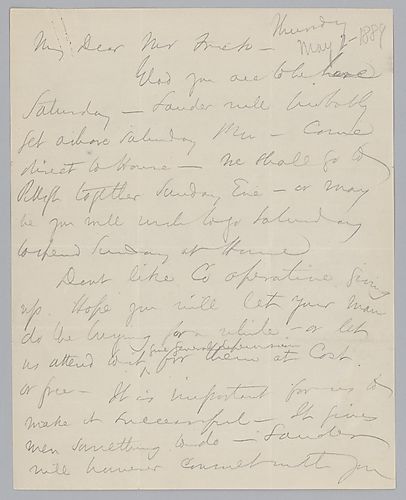 Thursday
May 2-1889
My Dear Mr Frick -
Glad you are to be here
Saturday - Lauder will probably
get aboard Saturday - Come
direct to House - We shall go to
Pittsbgh together Sunday Eve - or may
be you will wish to go Saturday
to spend Sunday at Home
Dont like Co operative giving
up. Hope you will let your man
do the buying for a while - or let
us attend to it, give general supervision
for them at Cost
or free - It is important for us to
make it successful - It gives
men something to do - Lauder
will however consult with you